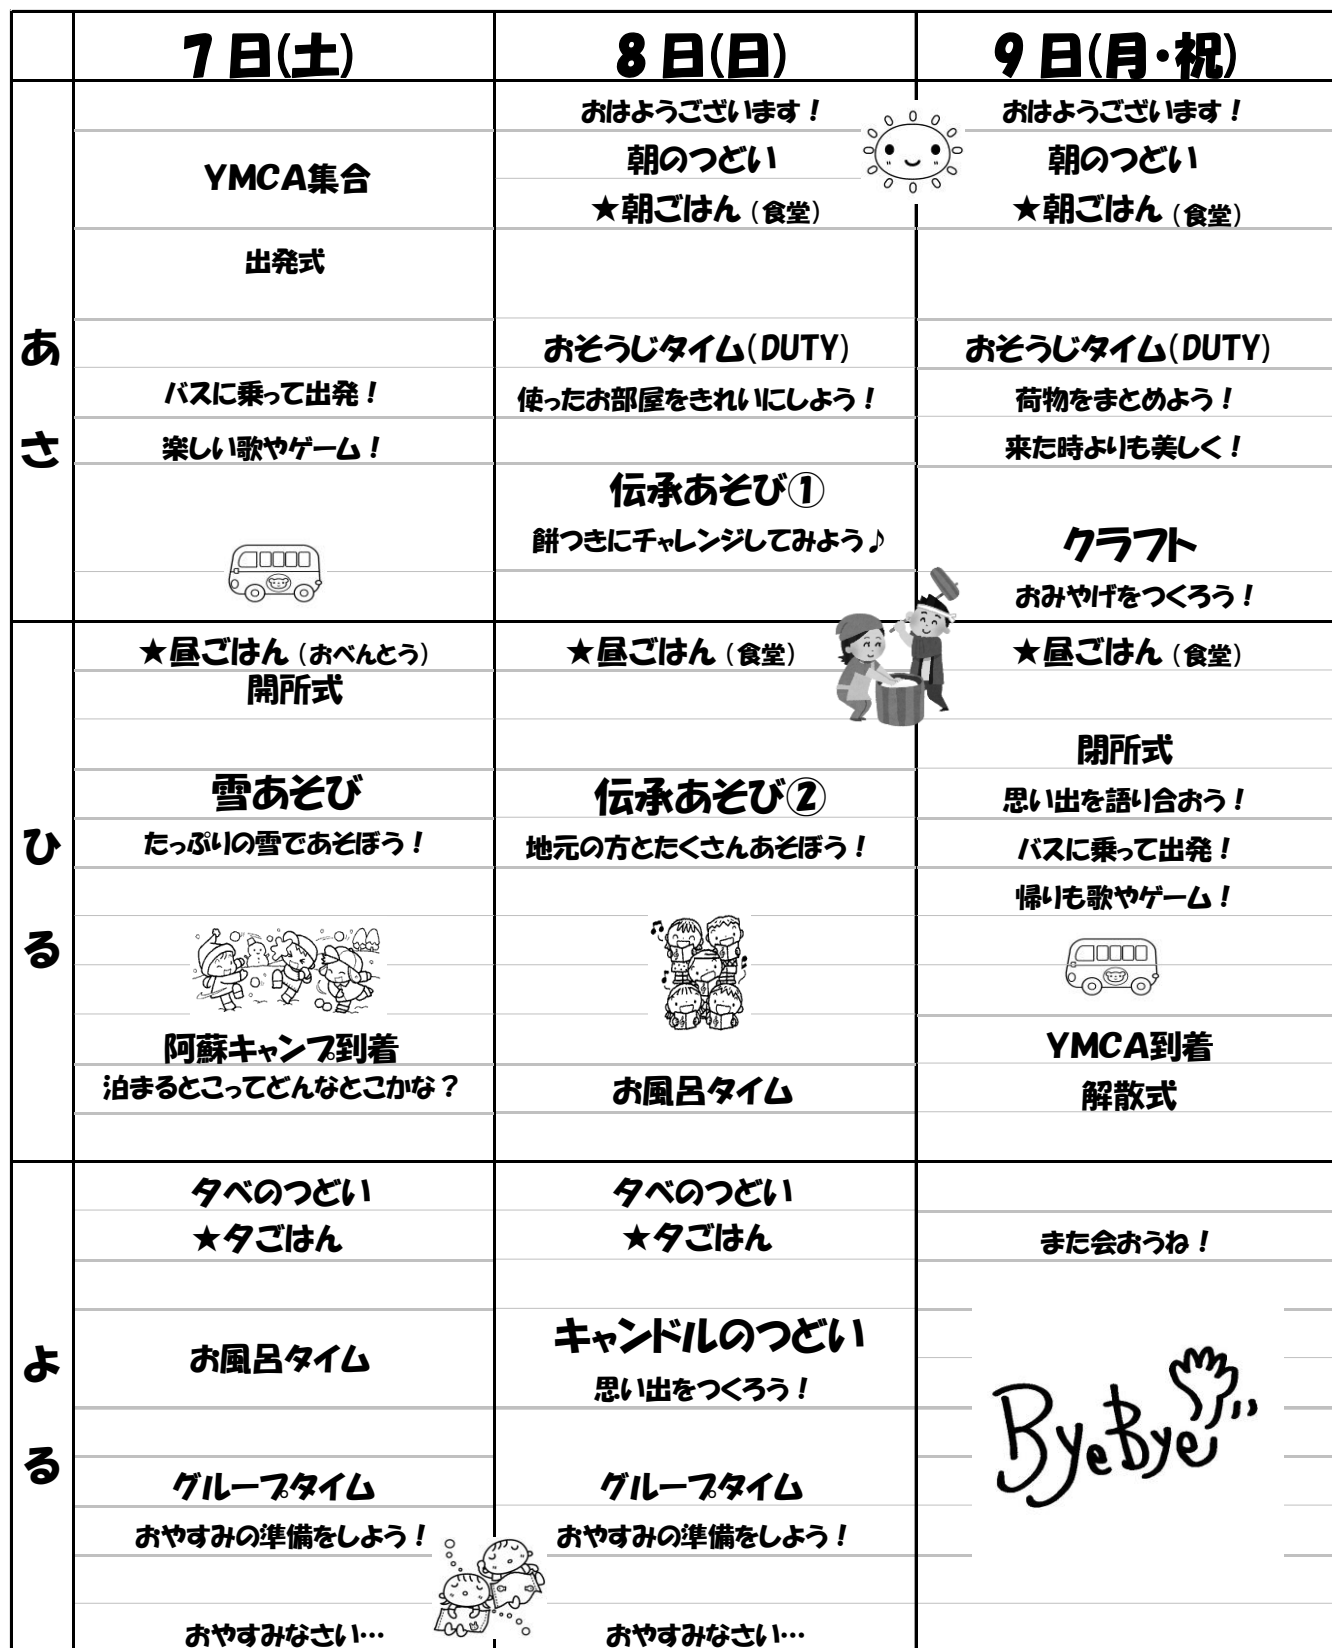 7日(土)
8日(日)
9日(月・祝)
あさ
YMCA集合
出発式
バスに乗って出発！
楽しい歌やゲーム！
おはようございます！
朝のつどい
★朝ごはん（食堂）
おそうじタイム(DUTY)
使ったお部屋をきれいにしよう！
伝承あそび①
餅つきにチャレンジしてみよう♪
おはようございます！
朝のつどい
★朝ごはん（食堂）
おそうじタイム(DUTY)
荷物をまとめよう！
来た時よりも美しく！
クラフト
おみやげをつくろう！
ひる
★昼ごはん（おべんとう）
開所式
雪あそび
たっぷりの雪であそぼう！
阿蘇キャンプ到着
泊まるとこってどんなとこかな？
★昼ごはん（食堂）
伝承あそび②
地元の方とたくさんあそぼう！
お風呂タイム
★昼ごはん（食堂）
閉所式
思い出を語り合おう！
バスに乗って出発！
帰りも歌やゲーム！
YMCA到着
解散式
よる
夕べのつどい
★夕ごはん
お風呂タイム
グループタイム
おやすみの準備をしよう！
おやすみなさい…
夕べのつどい
★夕ごはん
キャンドルのつどい
思い出をつくろう！
グループタイム
おやすみの準備をしよう！
おやすみなさい…
また会おうね！
ByeBye